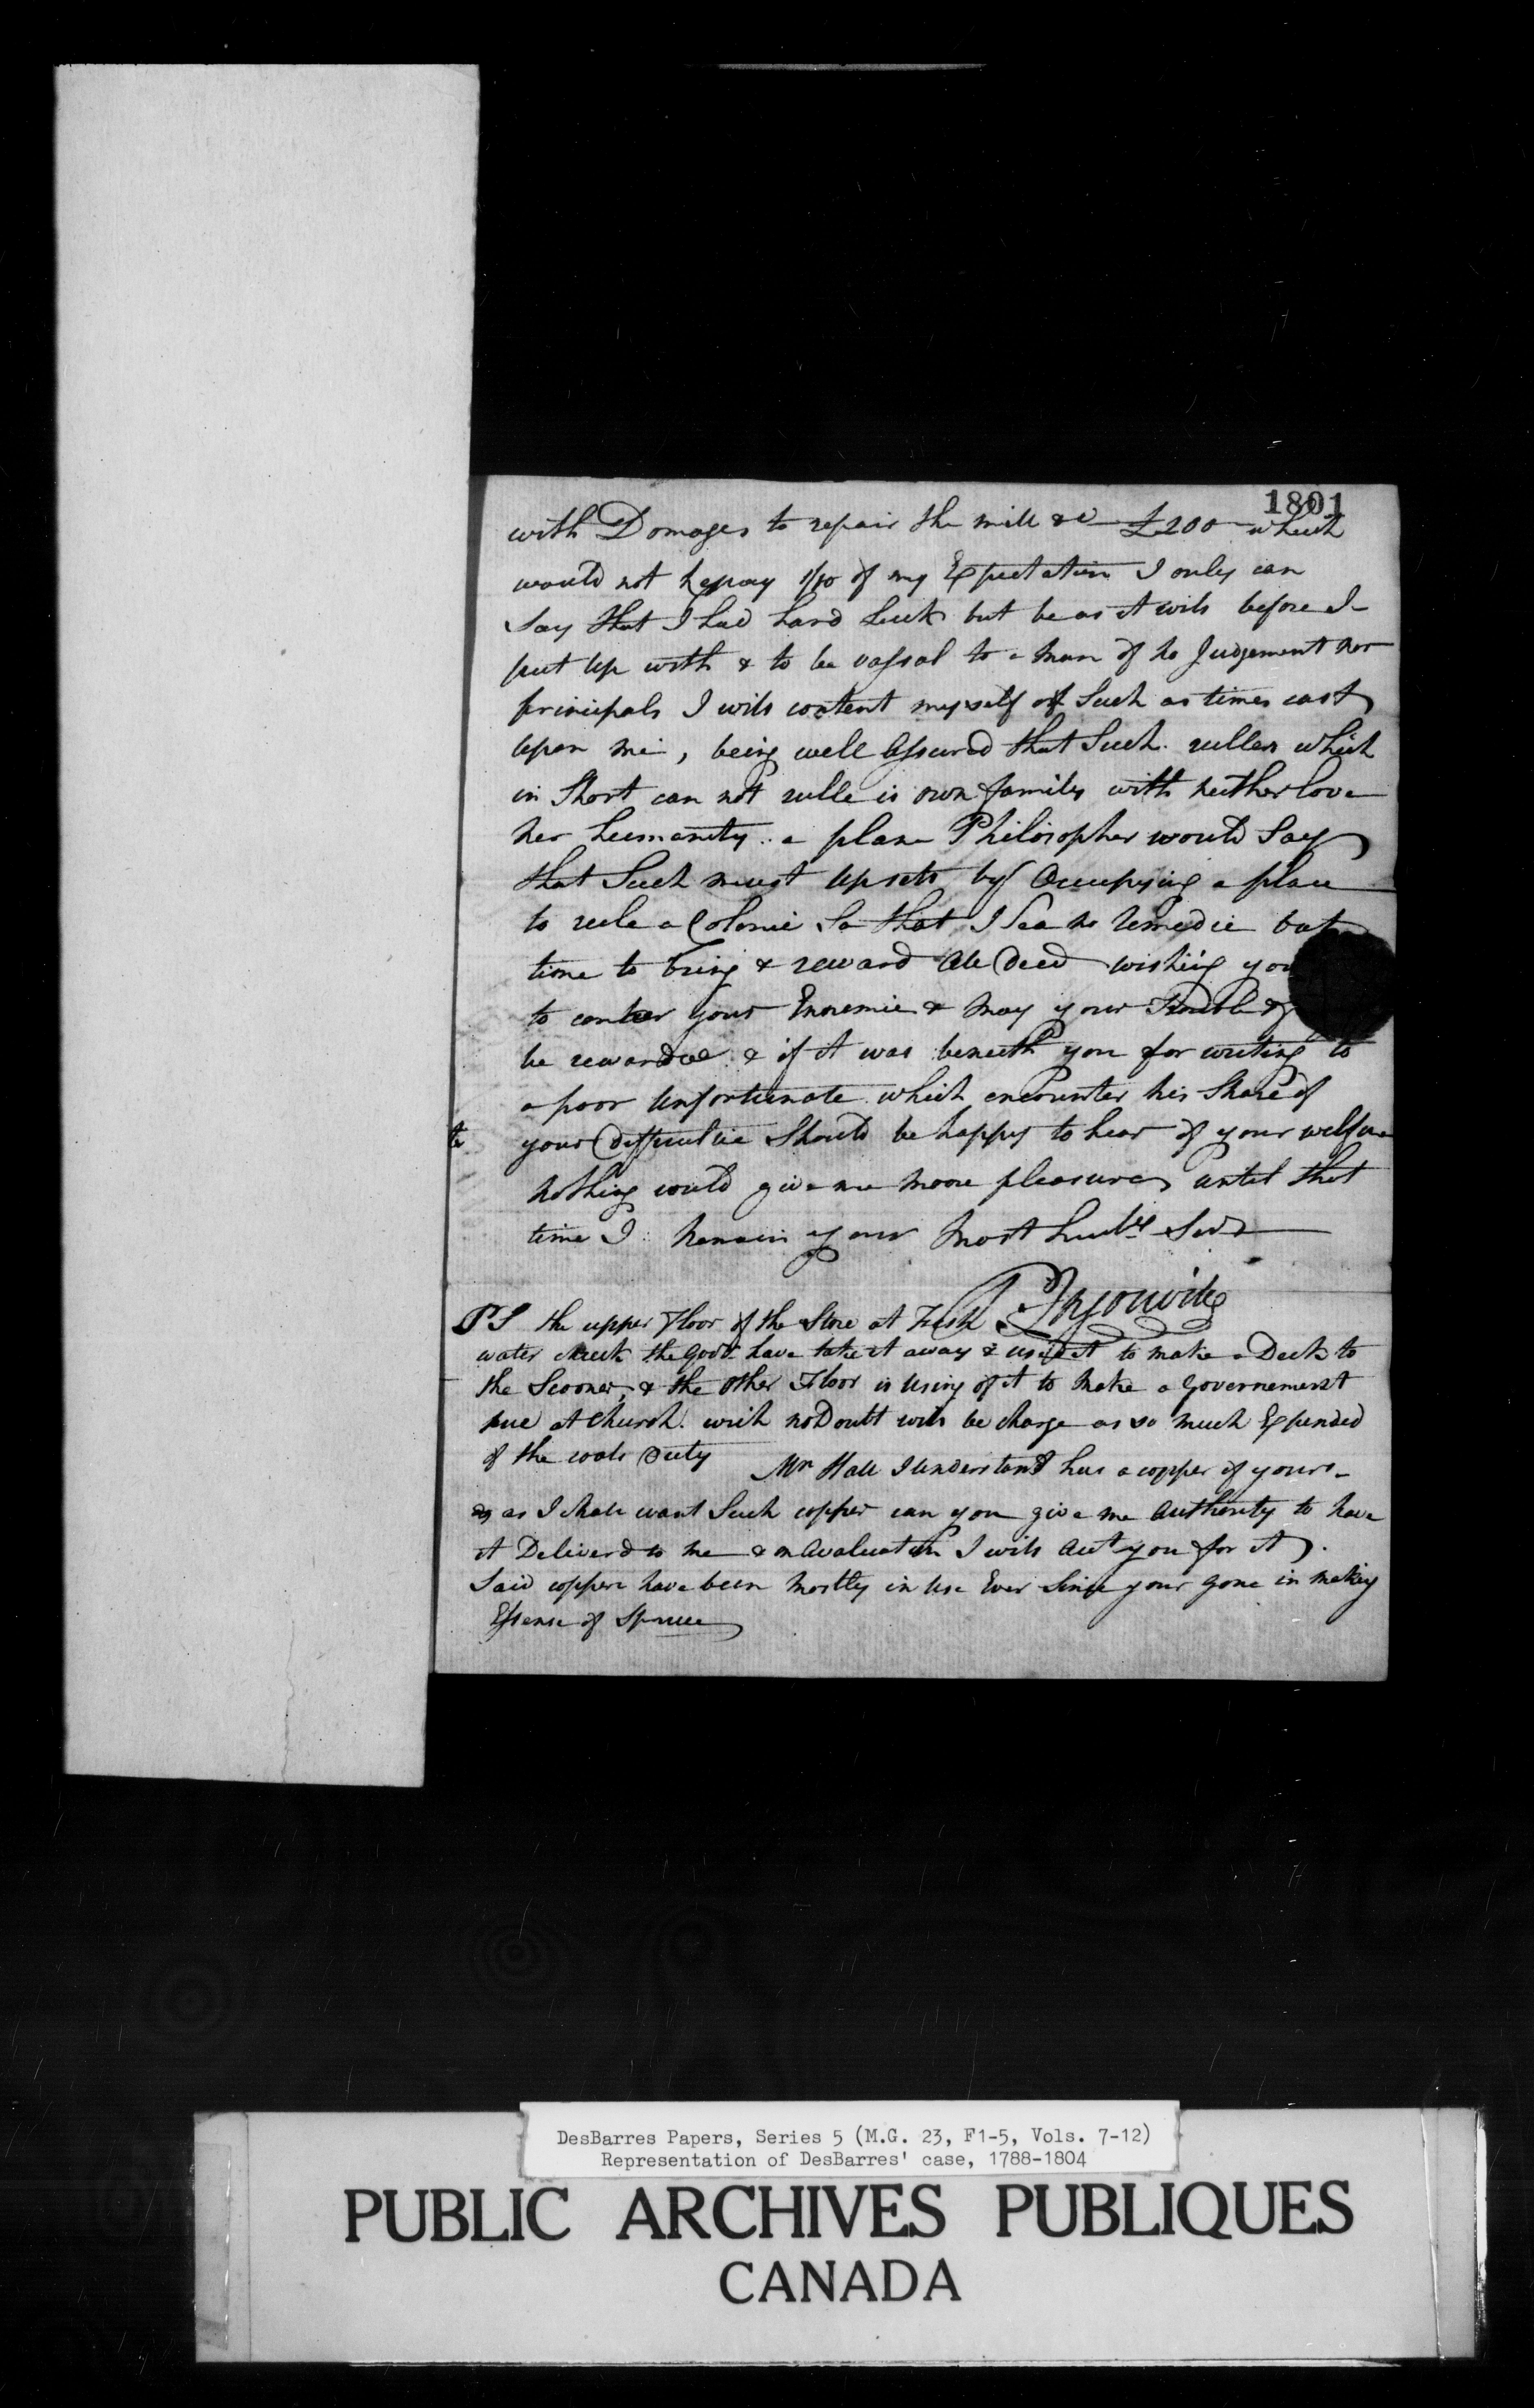 1801
with Domages to repair the mill &c £200 which
would not repay 1/10 of my Expectation I only can
Say that I had hard Luck but be as it wils before I
put up with & to be vassal to a man of no Judgement nor
principals I wils content myself of Such as times cast
upon me, being well assured that Such rullers which
in Short can not rulle is own family with neither love
nor humanity: a plane Philosopher would Say
that Such must upsets by Occupying a place
to rule a Colonie So that I See no Remedie but
time to bring & reward all Deed wishing you
to conker your Ennemie & may your Trouble &
be rewarded & if it was beneath you for writing to
a poor unfortunate which encounter his Share of
your Difficultie Should be happy to hear of your welfare
nothing would give me moore pleasure until that
time I Remain your most humble Servt
PS the upper Floor of the Store at Fresh
water Creek the Govr have take it away & used it to make a Deck to
the Scooner, & the other Floor is using of it to make a Governement
pue at Church wich no Doutt wils be charge as so much Expended
of the coals Duty Mr Hall I understand has a copper of yours
as I shall want Such copper can you give me authority to have
it Deliverd to me & on avaluation I wils Acct you for it
Said copper have been mostly in use Ever Since your gone in making
Essense of Spruce
DesBarres Papers, Series 5 (M.G. 23, F1-5, Vols. 7-12)
Representation of DesBarres' case, 1788-1804
PUBLIC ARCHIVES PUBLIQUES
CANADA